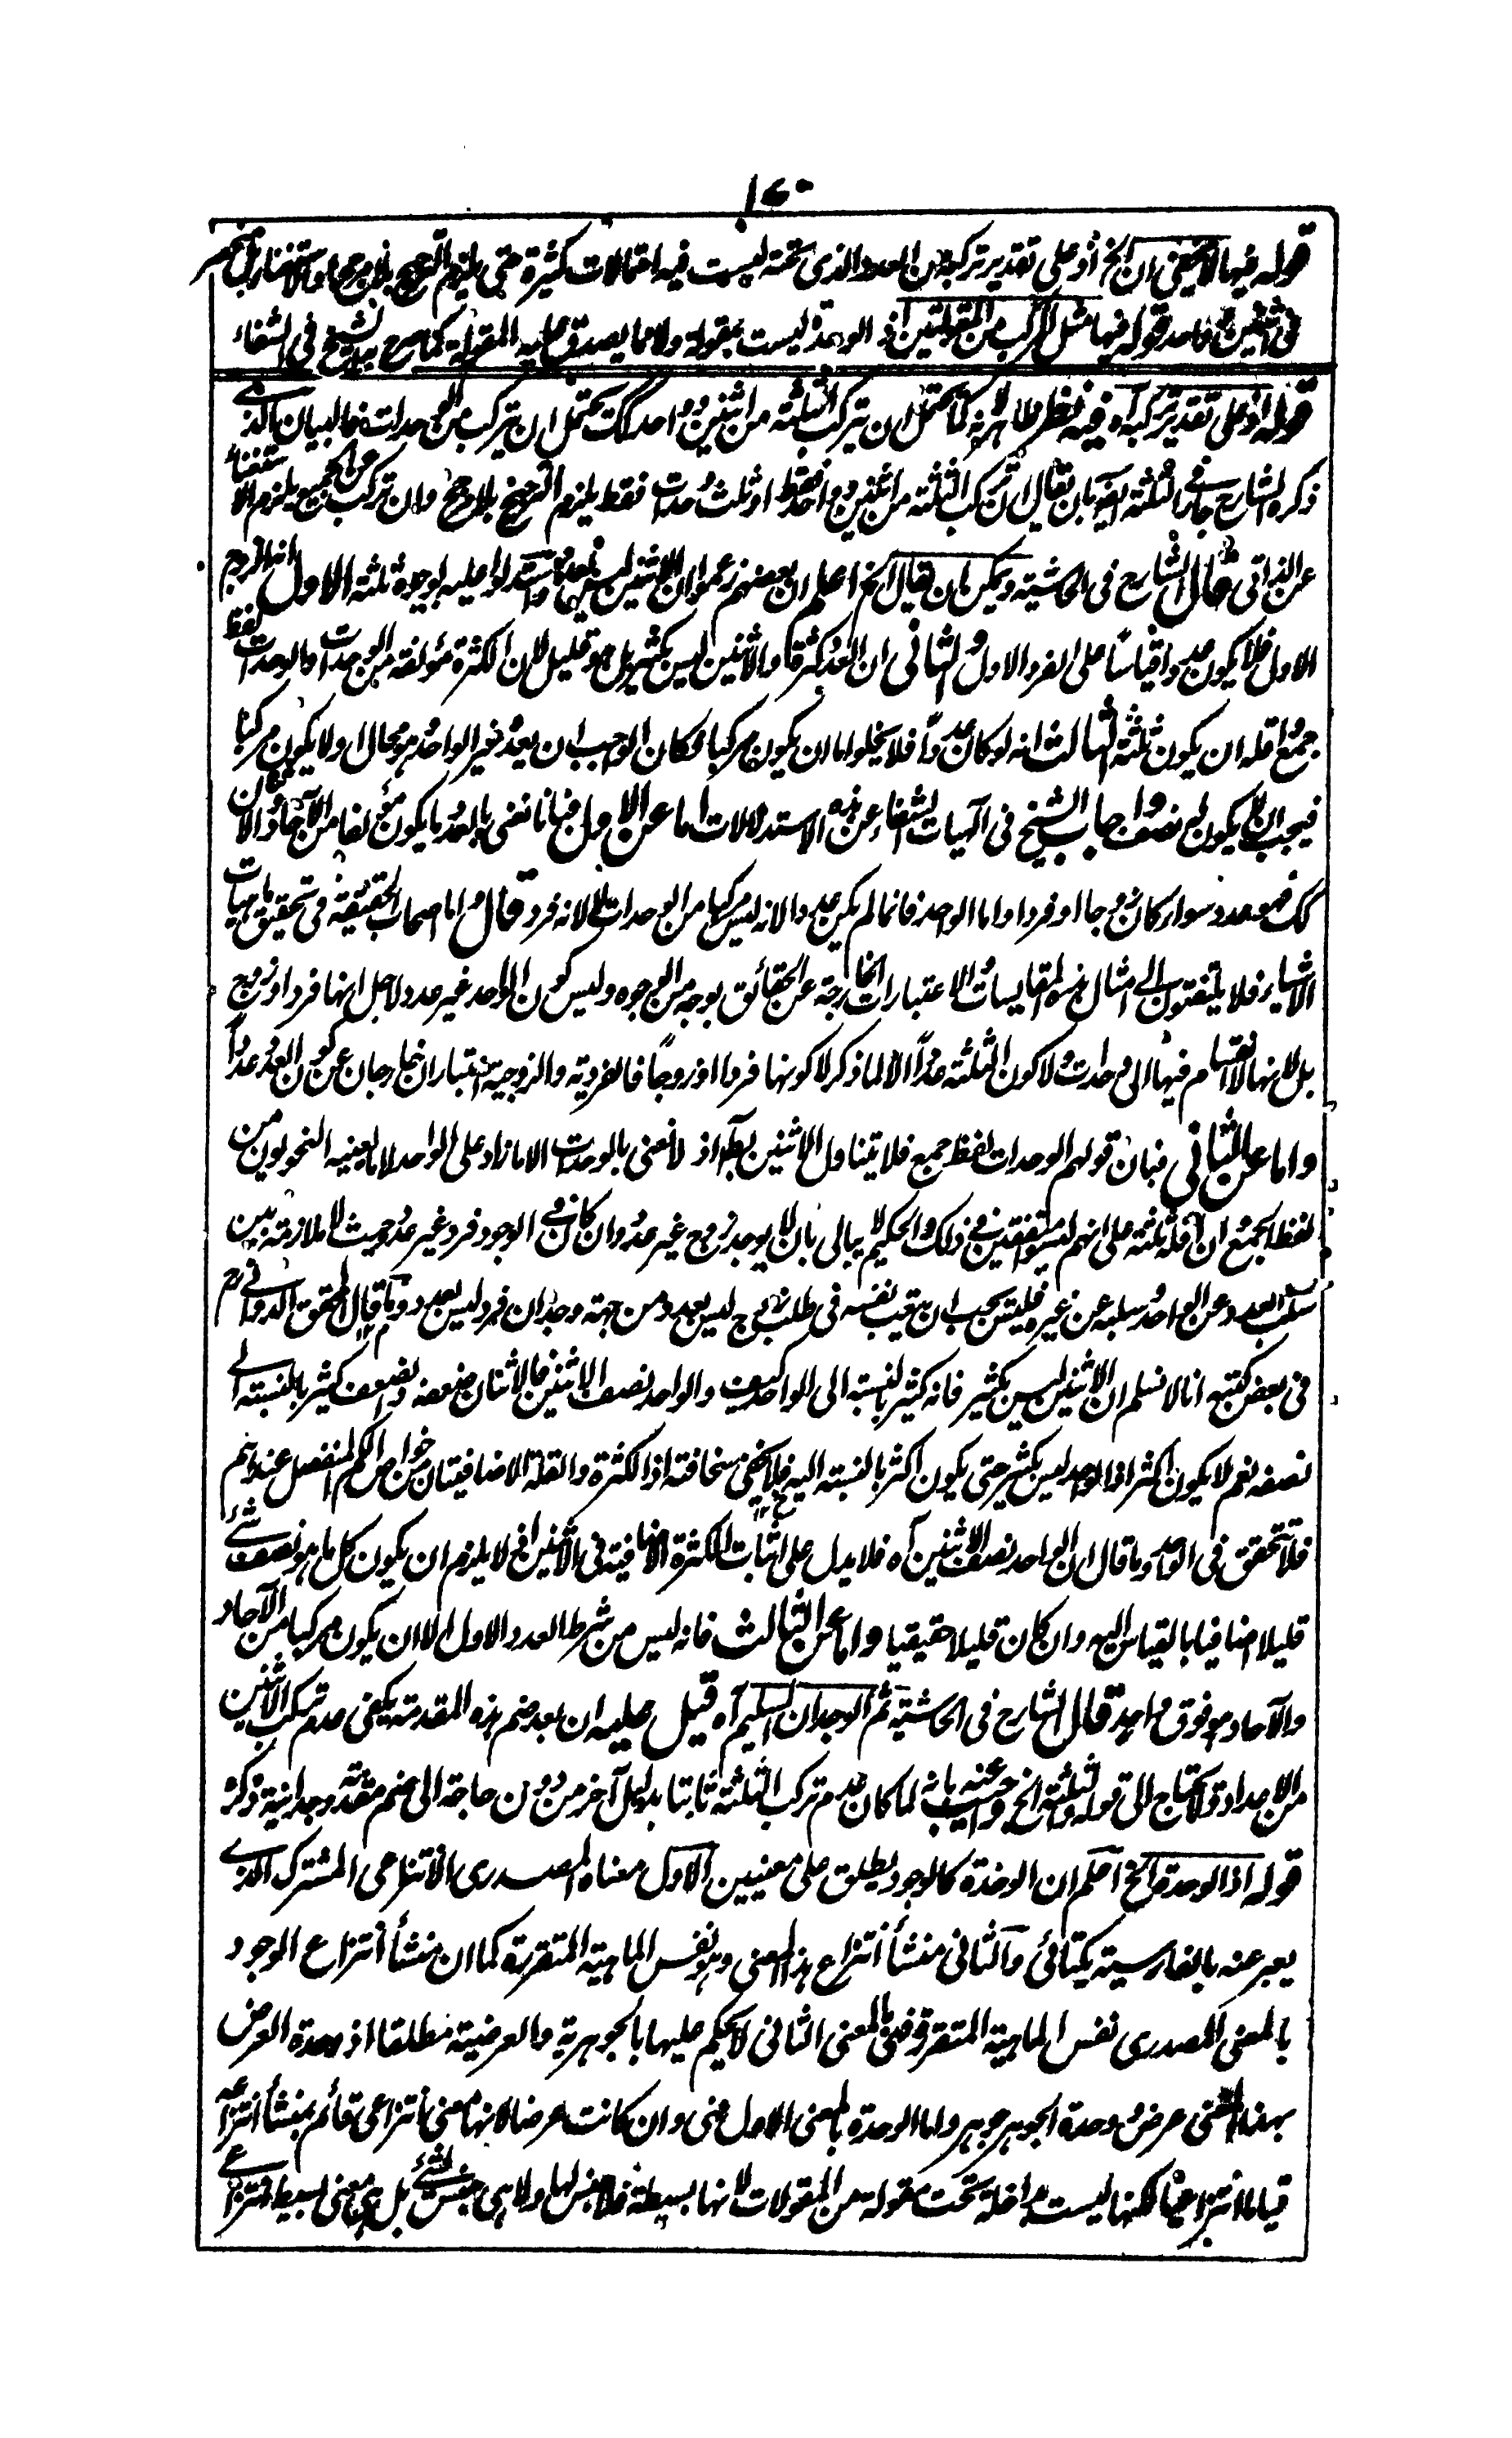 ١٧٠
قوله فيها لا يخفى ان الخ اذ على تقدير تركبه من العدد الذى تحته ليست فيه احتمالات كثيرة حتى يلزم الترجيح بلا مرجح او الاستغناء بل
فى اثنين وواحد قوله فيها مثل المركب من المقولتين اذ الوحدة ليست بمقولة ولا مما يصدق عليه المقولة كما صرح به الشيخ فى الشفاء
قوله اذ على تقدير تركبه اه فيه نظر ظاهر لانه كما يحتمل ان يتركب الثلثة من اثنين وواحد كك يحتمل ان يتركب من الوحدات فالبيان الذى
ذكره الشارح جار فى الثلثة ايضا بان يقال ان تركب الثلثة من اثنين وواحد فقط او ثلث وحدات فقط يلزم الترجيح بلا مرجح وان تركب من الجميع يلزم الاستغناء
عن الذاتى قال الشارح فى الحاشية ويمكن ان يقال الخ اعلم ان بعضهم زعموا ان الاثنين ليس بعدد واستدلوا عليه بوجوه ثلثة الاول انه الزوج
الاول فلا يكون عددا قياسا على الفرد الاول والثانى ان العدد كثرة والاثنين ليس بكثير بل هو قليل لان الكثرة مؤلفة من الوحدات والوحدات لفظ
جمع اقله ان يكون ثلثة الثالث انه لو كان عددا فلا يخلوا ما ان يكون مركبا فكان الواجب ان يعده غير الواحد وهو محال او لا يكون مركبا
فيجب ان لا يكون له نصف واجاب الشيخ فى الهيات الشفاء عن هذه الاستدلالات اما عن الاول فبانا نعنى بالعدد ما يكون مؤلفا من الآحاد والاثنان
كك فهو عدد سواء كان زوجا او فردا واما الواحد فانما لم يكن عددا لانه ليس مركبا من الوحدات لا لانه فرد قال واما اصحاب الحقيقة فى تحقيق ماهيات
الاشياء فلا يلتفتون الى امثال هذه المقايسات والاعتبارات الخارجة عن الحقائق بوجه من الوجوه وليس كون الواحد غير عدد لاجل انها فرد او زوج
بل لانها لا انقسام فيها الى وحدات ولا كون الثلثة عددا الا لما ذكر لا كونها فردا او زوجا فالفردية والزوجية اعتباران خارجان عن كون العدد عددا
واما عن الثانى فبان قولهم الوحدات لفظ جمع فلا يتناول الاثنين بط اذ لا نعنى بالوحدات الا ما زاد على الواحد لا ما يعنيه النحويون من
لفظ الجمع ان اقله ثلثة على انهم ليسوا متفقين فى ذلك والحكيم لا يبالى بان لا يوجد زوج غير عدد وان كان فى الوجود فرد غير عدد حيث لا ملازمة بين
سلب العدد عن الواحد وسلبه عن غيره فليس يجب ان يتعب نفسه فى طلب زوج ليس بعدد من جهة وجدان فرد ليس بعدد وما قال المحقق الدوانى رح
فى بعض كتبه انا لا نسلم ان الاثنين ليس بكثير فانه كثير بالنسبة الى الواحد كيف والواحد نصف الاثنين فالاثنان ضعفه والضعف كثير بالنسبة الى
نصفه نعم لا يكون اكثر اذ الواحد ليس بكثير حتى يكون اكثر بالنسبة اليه فلا يخفى سخافته اذ الكثرة والقلة الاضافيتان من خواص الكم المنفصل عندهم
فلا تحقق فى الواحد وما قال ان الواحد نصف الاثنين اه فلا يدل على اثبات الكثرة الاضافية فى الاثنين اذ لا يلزم ان يكون كل ما هو نصف شئ
قليلا اضافيا بالقياس اليه وان كان قليلا حقيقيا واما عن الثالث فانه ليس من شرط العدد الاول الا ان يكون مركبا من الآحاد
والآحاد هو فوق واحد قال الشارح فى الحاشية ثم الوجدان السليم اه قيل عليه ان بعد ضم هذه المقدمة يكفى عدم تركب الاثنين
من الاعداد ولا يحتاج الى قوله والثلثة الخ واجيب عنه بانه لما كان عدم تركب الثلثة ثابتا بدليل آخر من دون حاجة الى ضم مقدمة وجدانية ذكره
قوله اذ الوحدة الخ اعلم ان الوحدة كالوجود يطلق على معنيين الاول معناه المصدرى الانتزاعى المشترك الذى
يعبر عنه بالفارسية بيكتائى والثانى منشأ انتزاع هذا المعنى وهو نفس الماهية المتقررة كما ان منشأ انتزاع الوجود
بالمعنى المصدرى نفس الماهية المتقررة فهى بالمعنى الثانى لا يحكم عليها بالجوهرية والعرضية مطلقا اذ وحدة العرض
بهذا المعنى عرض ووحدة الجوهر جوهر واما الوحدة بالمعنى الاول فهى وان كانت عرضا لانها معنى انتزاعى قائم بمنشأ انتزاعه
قياما انتزاعيا لكنها ليست داخلة تحت مقولة من المقولات لانها بسيطة فلا جنس لها ولا هى جنس لشئ بل هى معنى بسيط انتزاعى